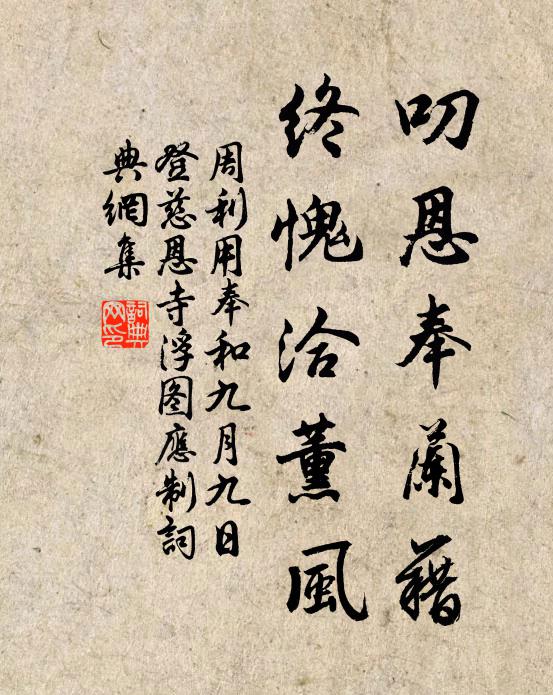 叨恩奉蘭藉
終愧洽薰風
周利用奉和九月九日
登慈恩寺浮图應制詞
典網集
詞典網印